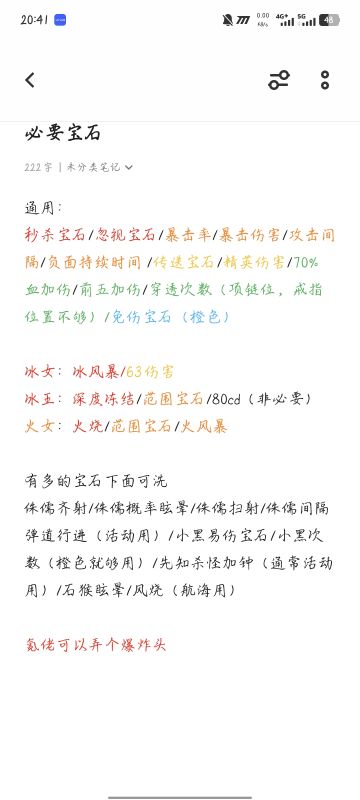 20:41
0.00
KB/s
4G+
5G
48
必要宝石
222字 | 未分类笔记
通用：
秒杀宝石/忽视宝石/暴击率/暴击伤害/攻击间
隔/负面持续时间 /传送宝石/精英伤害/70%
血加伤/前五加伤/穿透次数（项链位，戒指
位置不够）/免伤宝石（橙色）
冰女：冰风暴/63伤害
冰王：深度冻结/范围宝石/80cd（非必要）
火女：火烧/范围宝石/火风暴
有多的宝石下面可洗
侏儒齐射/侏儒概率眩晕/侏儒扫射/侏儒间隔
弹道行进（活动用）/小黑易伤宝石/小黑次
数（橙色就够用）/先知杀怪加钟（通常活动
用）/石猴眩晕/风烧（航海用）
氪佬可以弄个爆炸头